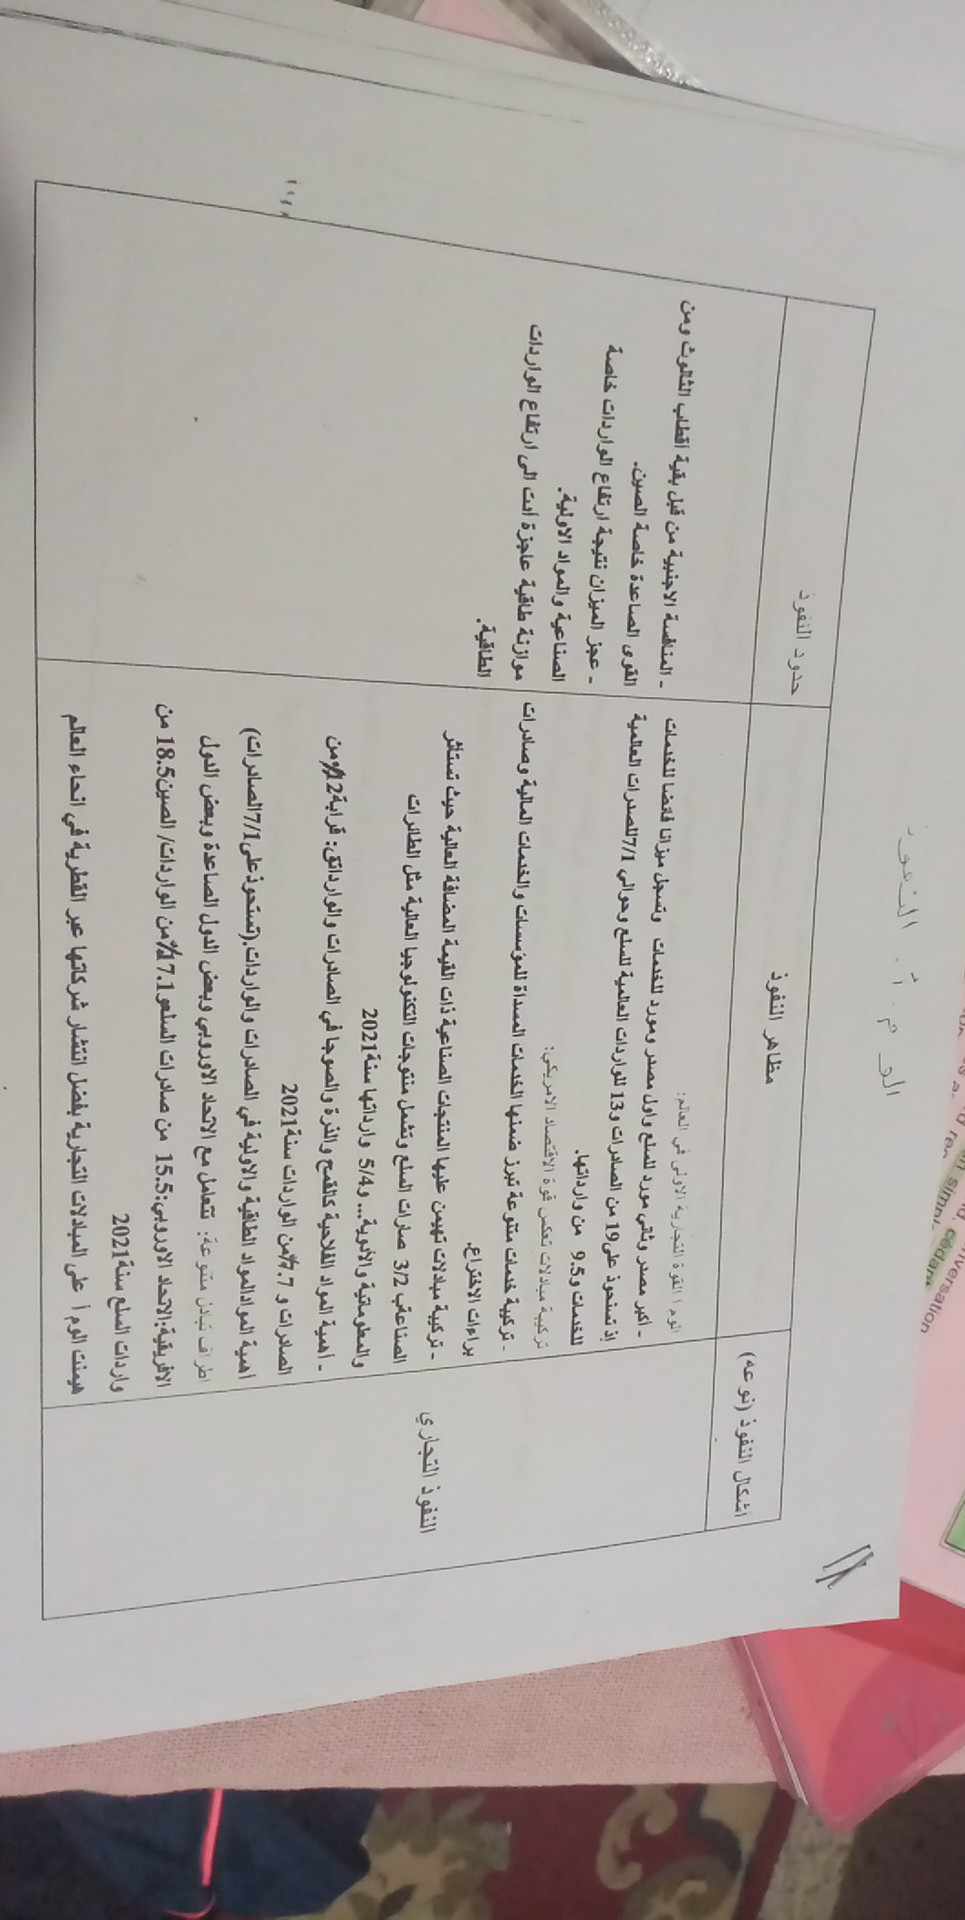 الو . م . أ : النفوذ
أشكال النفوذ (نوعه)
مظاهر النفوذ
حدود النفوذ
النفوذ التجاري
الوم ا القوة التجارية الاولى في العالم:
- أكبر مصدر وثاني مورد للسلع واول مصدر ومورد للخدمات وتسجل ميزانا فائضا للخدمات
إذ تستحوذ على 19 من الصادرات و13 للواردات العالمية للسلع وحوالي 7/1 للصدرات العالمية
للخدمات و9.5 من وارداتها.
تركيبة مبادلات تعكس قوة الاقتصاد الامريكي:
- تركيبة خدمات متنوعة تبرز ضمنها الخدمات المسداة للمؤسسات والخدمات المالية وصادرات
براءات الاختراع.
- تركيبة مبادلات تهيمن عليها المنتجات الصناعية ذات القيمة المضافة العالية حيث تستأثر
الصناعةب 3/2 صدرات السلع وتشمل منتوجات التكنولوجيا العالية مثل الطائرات
والمعلوماتية والأدوية... و5/4 وارداتها سنة2021
- أهمية المواد الفلاحية كالقمح والذرة والصوجا في الصادرات والواردائق: قرابة12%من
الصادرات و 7.7%من الواردات سنة2021
أهمية الموادالمواد الطاقية والاولية في الصادرات والواردات.(تستحوذعلى7/1الصادرات)
اطراف تبادل متنوعة: تتعامل مع الاتحاد الاوروبي وبعض الدول الصاعدة وبعض الدول
الافريقية:الاتحاد الاوروبي:15.5 من صادرات السلعو17.1%من الواردات/ الصين18.5 من
واردات السلع سنة2021
هيمنت الوم أ على المبادلات التجارية بفضل انتشار شركاتها عبر القطرية في انحاء العالم
- المنافسة الاجنبية من قبل بقية أقطاب الثالوث ومن
القوى الصاعدة خاصة الصين.
- عجز الميزان نتيجة ارتفاع الواردات خاصة
الصناعية والمواد الاولية.
موازنة طاقية عاجزة أدت الى ارتفاع الواردات
الطاقية.